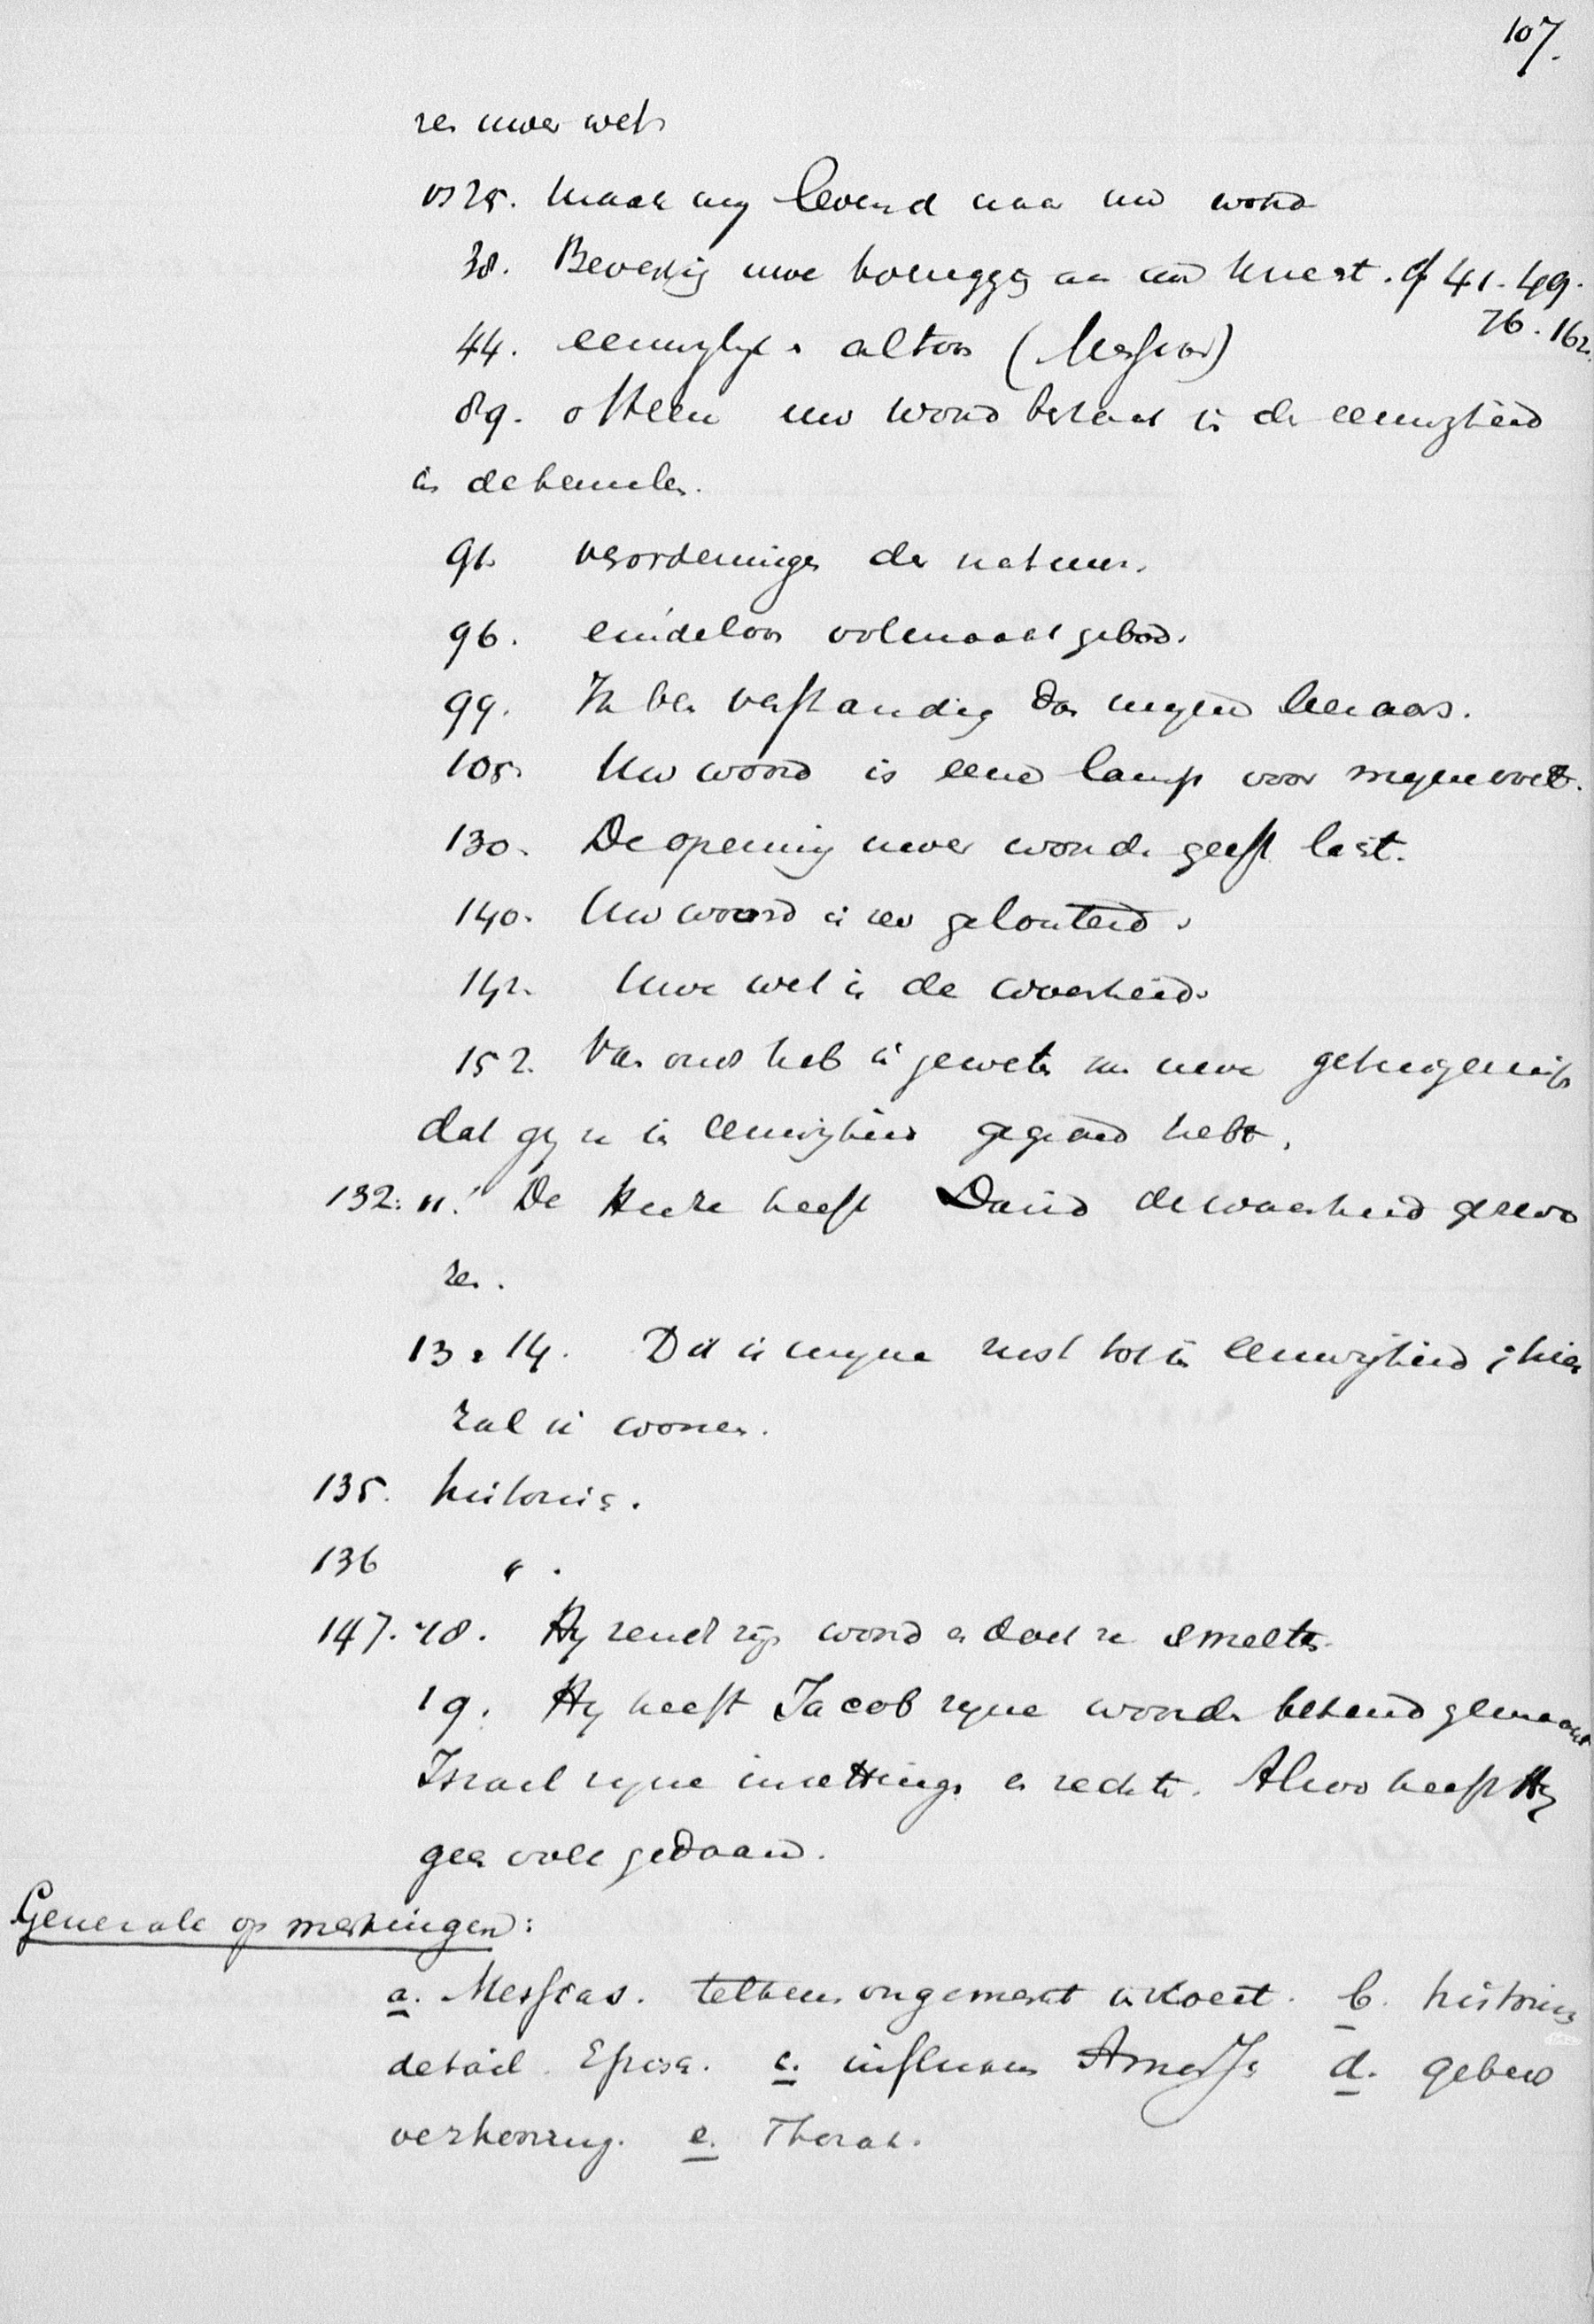 107.
zen uwer wet.
vs 25. Maak my levend naar uw woord
38. Bevestig uwe toezegging aan uw knecht. cf 41. 49.
76. 162.
44. eeuwiglyk en altoos (Messias)
89. o Heer uw woord bestaat in de eeuwigheid
in de hemelen.
91. verordeningen der natuur.
96. eindeloos volmaakt gebod.
99. Ik ben verstandiger dan mijne leeraars.
105. Uw woord is eene lamp voor mijnen voet.
130. De opening uwer woorden geeft licht.
140. Uw woord is zeer gelouterd.
142. Uwe wet is de waarheid.
152. Van ouds heb ik geweten van uwe getuigenissen
dat gy ze in eeuwigheid gegrond hebt.
132: 11. De Heere heeft David de waarheid gezwo
ren.
13 & 14. Dit is mijne rust tot in eeuwigheid; hier
zal ik wonen.
135. historie.
136 " .
147. 18. Hy zendt zijn woord en doet ze smelten.
19. Hy heeft Jacob zyne woorden bekend gemaakt
Israel zyne inzettingen en rechten. Alzoo heeft Hy
geen volk gedaan.
Generale opmerkingen:
a. Messias. telkens ongemerkt invloeit. b. historie
detail. Episch. c. influence d. gebeds
verhooring. e. Thorah.